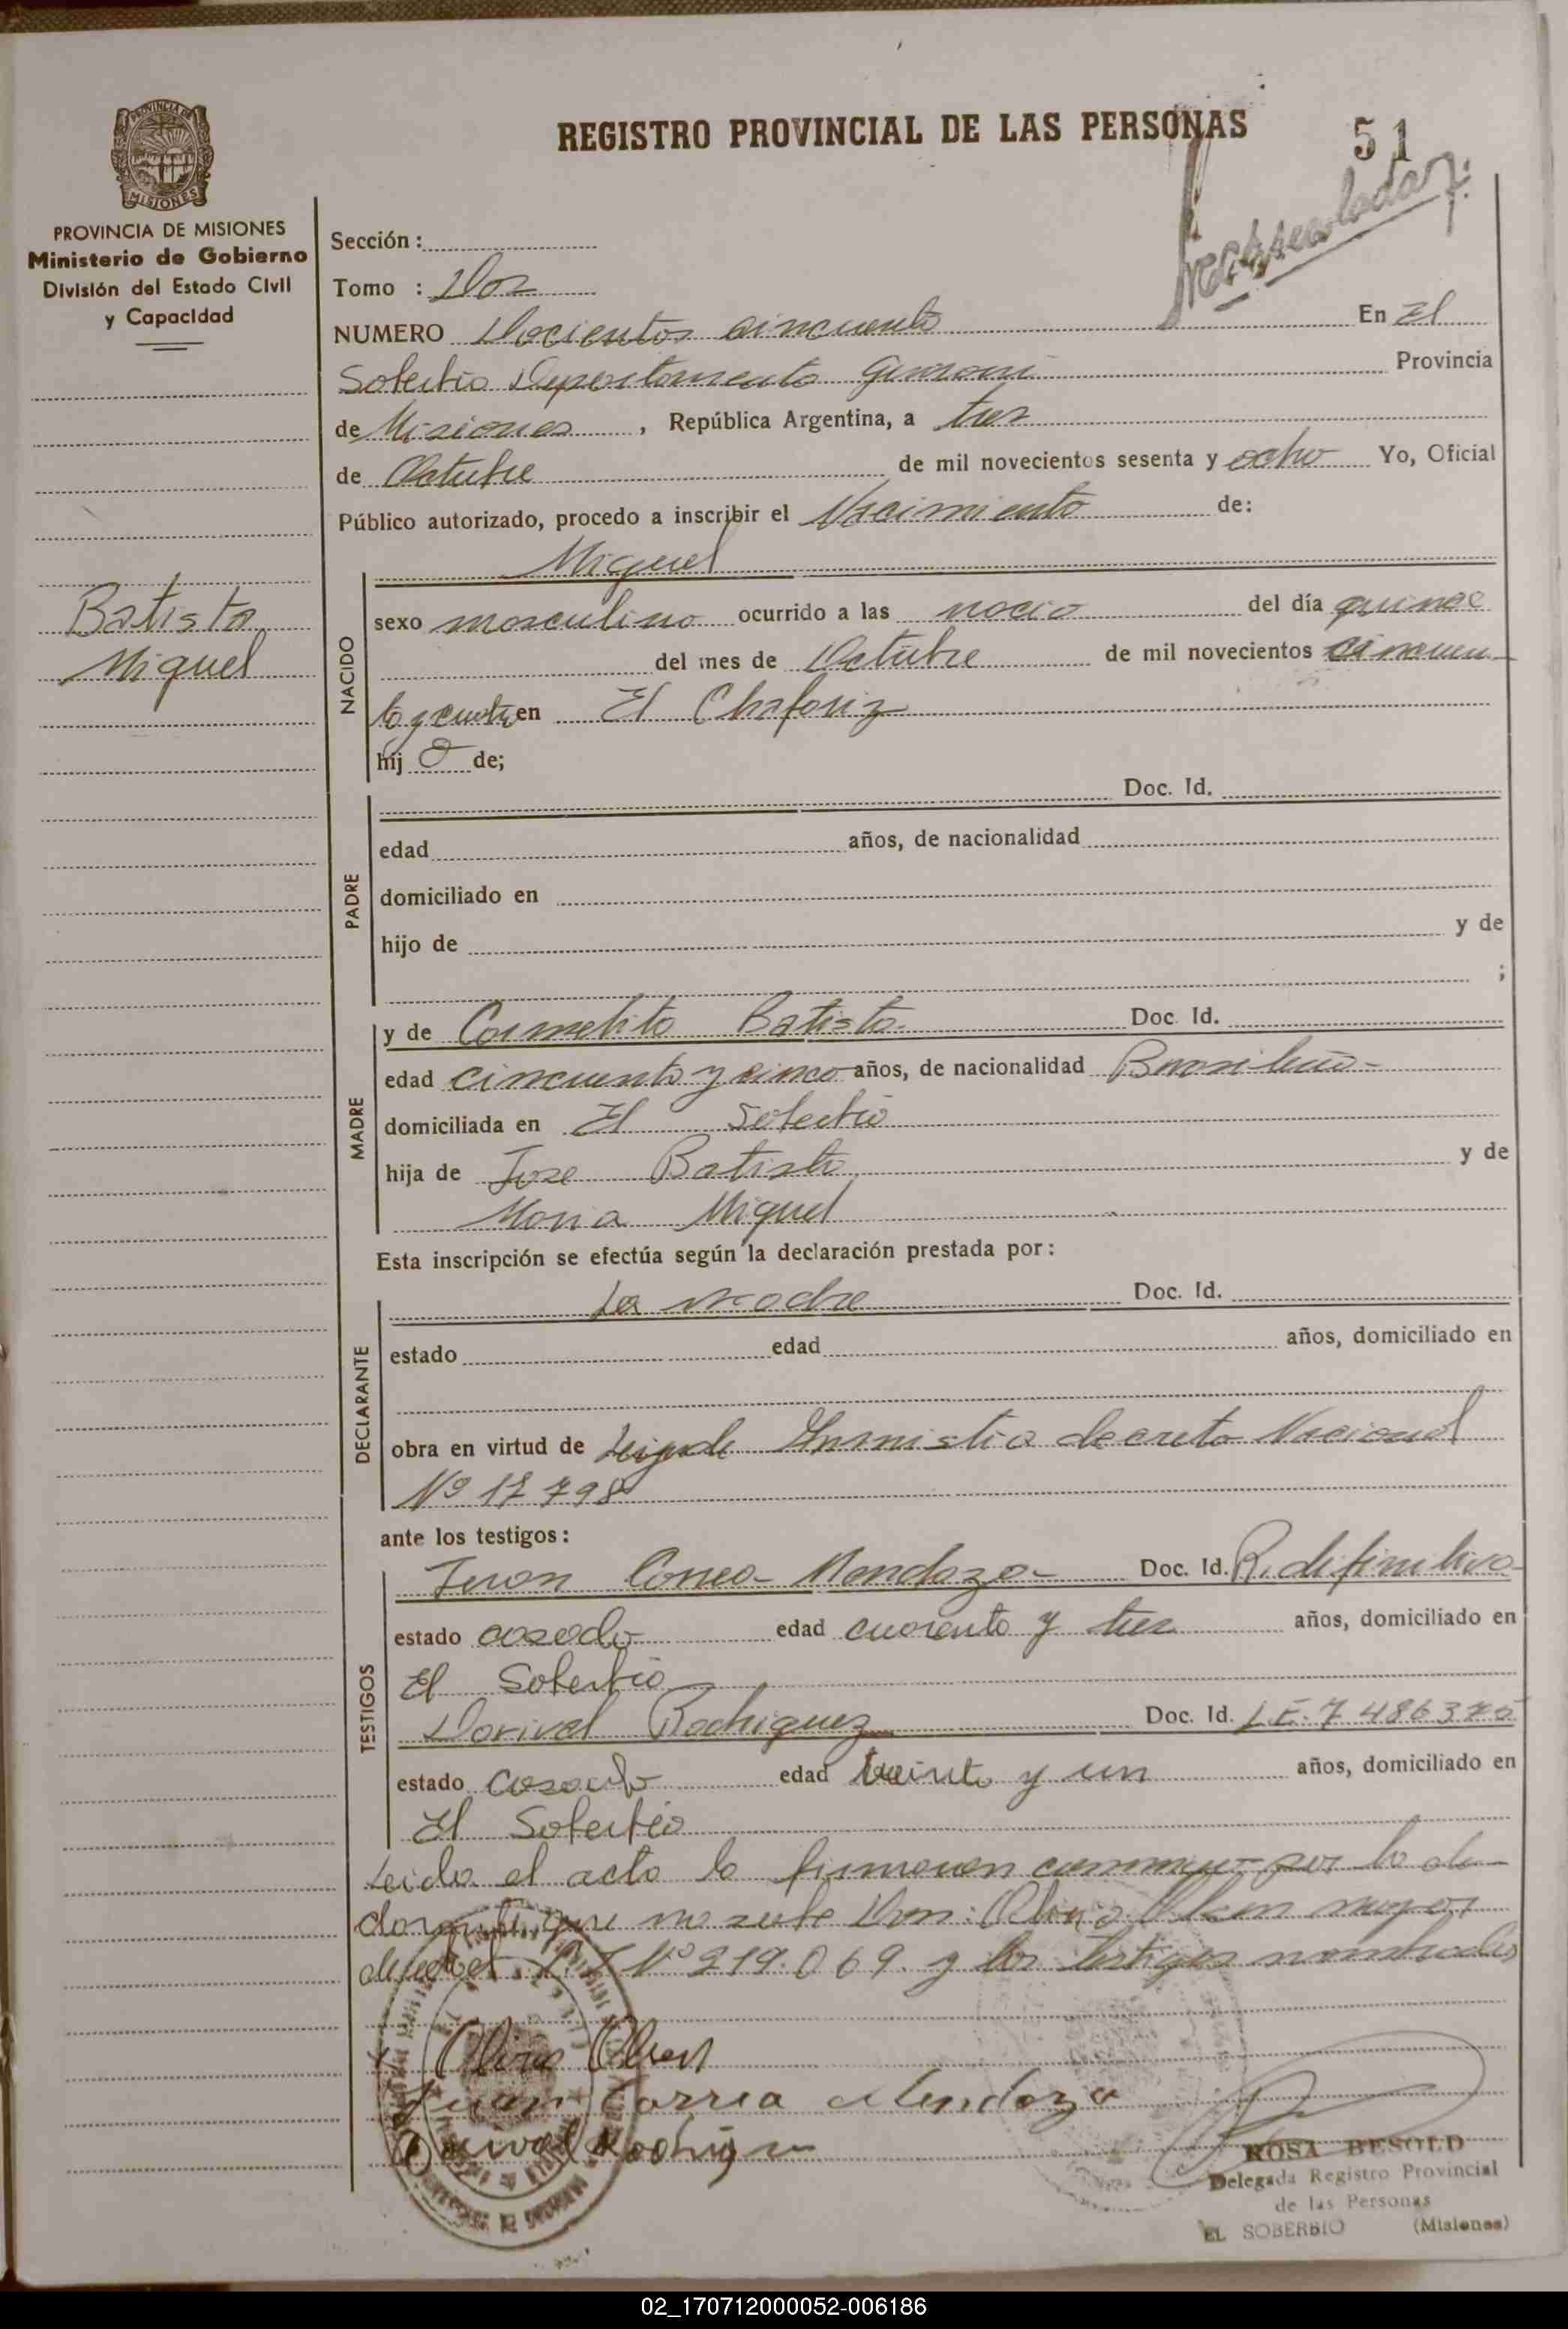 REGISTRO PROVINCIAL DE LAS PERSONAS
51
MISIONES
PROVINCIA DE MISIONES
Ministerio de Gobierno
División del Estado Civil
y Capacidad
Sección :
Tomo : Dos
NUMERO Docientos cincuenta En El
Soberbio Departamento Guarani Provincia
de Misiones , República Argentina, a tres
de Octubre de mil novecientos sesenta y ocho Yo, Oficial
Público autorizado, procedo a inscribir el Nacimiento de:
Miguel
Batista
Miguel
NACIDO
sexo masculino ocurrido a las del día quince
del mes de Octubre de mil novecientos cincuen
ta y cuatro en El Chafariz
hij o de;
PADRE
Doc. Id.
edad años, de nacionalidad
domiciliado en
hijo de y de
;
MADRE
y de Carmelita Batista Doc. Id.
edad cincuenta y cinco años, de nacionalidad Brasileña
domiciliada en El Soberbio
hija de Jose Batista y de
Maria Miguel
Esta inscripción se efectúa según la declaración prestada por:
DECLARANTE
La madre Doc. Id.
estado edad años, domiciliado en
obra en virtud de decreto Nacional
Nº 17798
ante los testigos:
TESTIGOS
Juan Correa Mendoza Doc. Id. R. difinitiva
estado casado edad cuarenta y tres años, domiciliado en
El Soberbio
Dorival Rodriguez Doc. Id. L.E. 7486375
estado casado edad treinta y un años, domiciliado en
El Soberbio
Leida el acta la firmaron conmigo por la de
que no sabe Don: Olivio Olsen mayor
de edad Nº 219.069. y los testigos nombrados
Olivio Olsen
Juan Correa Mendoza
Dorival Rodrigu
ROSA BESOLD
Delegada Registro Provincial
de las Personas
EL SOBERBIO (Misiones)
02_170712000052-006186